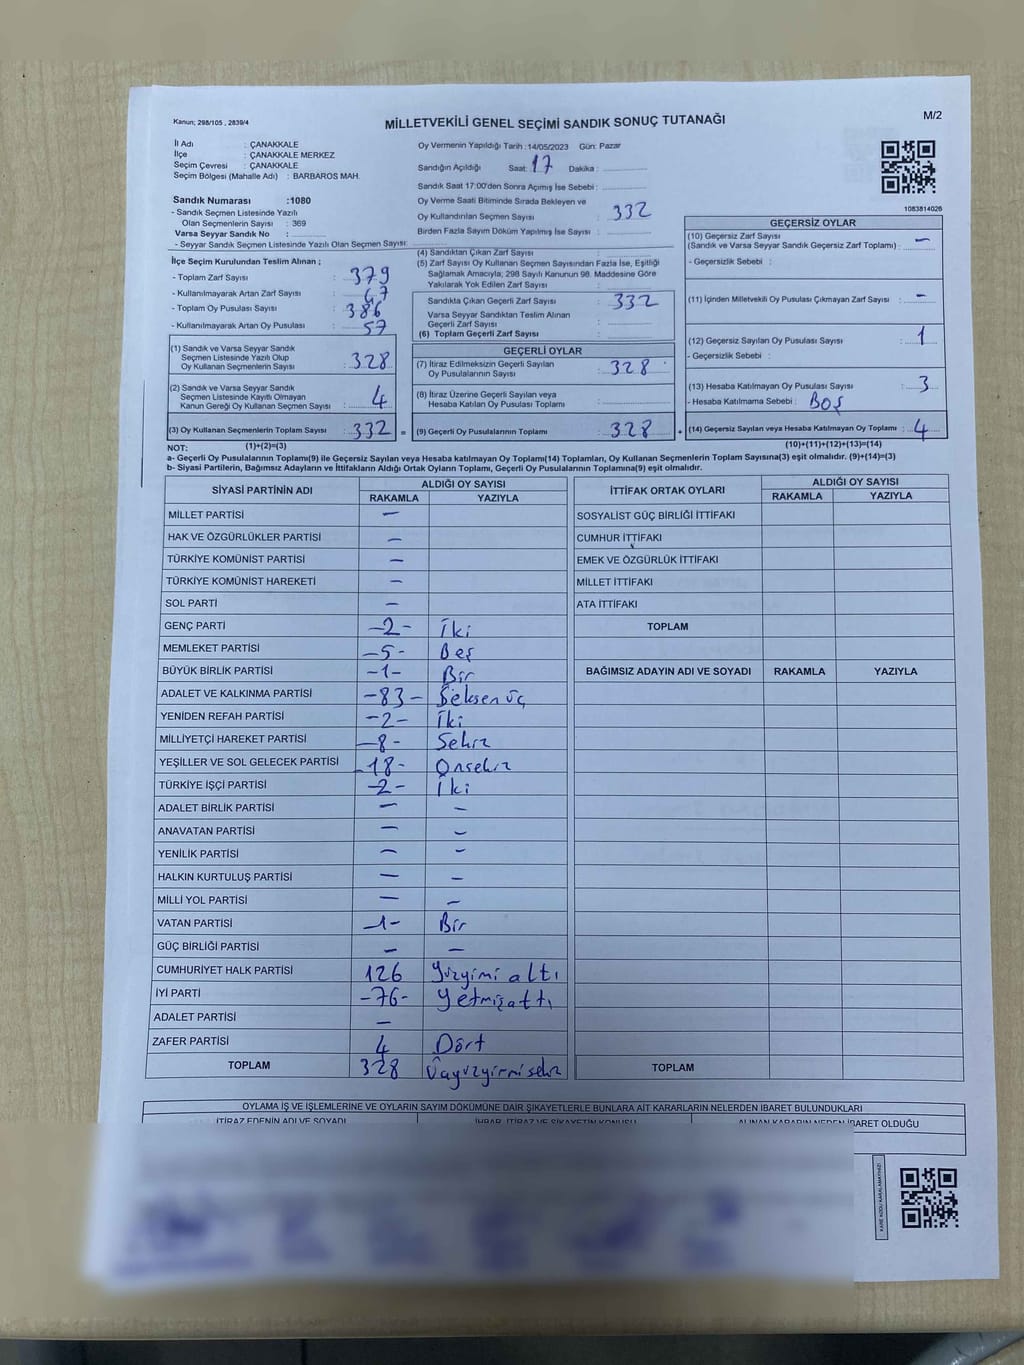 Kanun; 298/105 , 2839/4
MİLLETVEKİLİ GENEL SEÇİMİ SANDIK SONUÇ TUTANAĞI
M/2
İl Adı : ÇANAKKALE
İlçe : ÇANAKKALE MERKEZ
Seçim Çevresi : ÇANAKKALE
Seçim Bölgesi (Mahalle Adı) : BARBAROS MAH.
Sandık Numarası :1080
- Sandık Seçmen Listesinde Yazılı
Olan Seçmenlerin Sayısı : 369
Varsa Seyyar Sandık No :
- Seyyar Sandık Seçmen Listesinde Yazılı Olan Seçmen Sayısı:
İlçe Seçim Kurulundan Teslim Alınan ;
- Toplam Zarf Sayısı : 379
- Kullanılmayarak Artan Zarf Sayısı : 47
- Toplam Oy Pusulası Sayısı : 386
- Kullanılmayarak Artan Oy Pusulası : 57
(1) Sandık ve Varsa Seyyar Sandık
Seçmen Listesinde Yazılı Olup
Oy Kullanan Seçmenlerin Sayısı : 328
(2) Sandık ve Varsa Seyyar Sandık
Seçmen Listesinde Kayıtlı Olmayan
Kanun Gereği Oy Kullanan Seçmen Sayısı : 4
(3) Oy Kullanan Seçmenlerin Toplam Sayısı : 332 =
Oy Vermenin Yapıldığı Tarih :14/05/2023 Gün: Pazar
Sandığın Açıldığı Saat: 17 Dakika :
Sandık Saat 17:00'den Sonra Açımış İse Sebebi :
Oy Verme Saati Bitiminde Sırada Bekleyen ve
Oy Kullandırılan Seçmen Sayısı : 332
Birden Fazla Sayım Döküm Yapılmış İse Sayısı :
(4) Sandıktan Çıkan Zarf Sayısı :
(5) Zarf Sayısı Oy Kullanan Seçmen Sayısından Fazla İse, Eşitliği
Sağlamak Amacıyla; 298 Sayılı Kanunun 98. Maddesine Göre
Yakılarak Yok Edilen Zarf Sayısı :
Sandıkta Çıkan Geçerli Zarf Sayısı : 332
Varsa Seyyar Sandıktan Teslim Alınan
Geçerli Zarf Sayısı :
(6) Toplam Geçerli Zarf Sayısı :
GEÇERLİ OYLAR
(7) İtiraz Edilmeksizin Geçerli Sayılan
Oy Pusulalarının Sayısı : 328
(8) İtiraz Üzerine Geçerli Sayılan veya
Hesaba Katılan Oy Pusulası Toplamı :
(9) Geçerli Oy Pusulalarının Toplamı : 328 +
1083814026
GEÇERSİZ OYLAR
(10) Geçersiz Zarf Sayısı
(Sandık ve Varsa Seyyar Sandık Geçersiz Zarf Toplamı) : -
- Geçersizlik Sebebi :
(11) İçinden Milletvekili Oy Pusulası Çıkmayan Zarf Sayısı : -
(12) Geçersiz Sayılan Oy Pusulası Sayısı : 1
- Geçersizlik Sebebi :
(13) Hesaba Katılmayan Oy Pusulası Sayısı : 3
- Hesaba Katılmama Sebebi : BOŞ
(14) Geçersiz Sayılan veya Hesaba Katılmayan Oy Toplamı : 4
NOT: (1)+(2)=(3) (10)+(11)+(12)+(13)=(14)
a- Geçerli Oy Pusulalarının Toplamı(9) ile Geçersiz Sayılan veya Hesaba katılmayan Oy Toplamı(14) Toplamları, Oy Kullanan Seçmenlerin Toplam Sayısına(3) eşit olmalıdır. (9)+(14)=(3)
b- Siyasi Partilerin, Bağımsız Adayların ve İttifakların Aldığı Ortak Oyların Toplamı, Geçerli Oy Pusulalarının Toplamına(9) eşit olmalıdır.
SİYASİ PARTİNİN ADI ALDIĞI OY SAYISI
RAKAMLA YAZIYLA
MİLLET PARTİSİ -
HAK VE ÖZGÜRLÜKLER PARTİSİ -
TÜRKİYE KOMÜNİST PARTİSİ -
TÜRKİYE KOMÜNİST HAREKETİ -
SOL PARTİ -
GENÇ PARTİ -2- İki
MEMLEKET PARTİSİ -5- Beş
BÜYÜK BİRLİK PARTİSİ -1- Bir
ADALET VE KALKINMA PARTİSİ -83- Seksen üç
YENİDEN REFAH PARTİSİ -2- İki
MİLLİYETÇİ HAREKET PARTİSİ -8- Sekiz
YEŞİLLER VE SOL GELECEK PARTİSİ -18- Onsekiz
TÜRKİYE İŞÇİ PARTİSİ -2- İki
ADALET BİRLİK PARTİSİ - -
ANAVATAN PARTİSİ - -
YENİLİK PARTİSİ - -
HALKIN KURTULUŞ PARTİSİ - -
MİLLİ YOL PARTİSİ - -
VATAN PARTİSİ -1- Bir
GÜÇ BİRLİĞİ PARTİSİ - -
CUMHURİYET HALK PARTİSİ 126 Yüzyimi altı
İYİ PARTİ -76- Yetmişaltı
ADALET PARTİSİ -
ZAFER PARTİSİ 4 Dört
TOPLAM 328 Üçyüzyirmisekiz
İTTİFAK ORTAK OYLARI ALDIĞI OY SAYISI
RAKAMLA YAZIYLA
SOSYALİST GÜÇ BİRLİĞİ İTTİFAKI
CUMHUR İTTİFAKI
EMEK VE ÖZGÜRLÜK İTTİFAKI
MİLLET İTTİFAKI
ATA İTTİFAKI
TOPLAM
BAĞIMSIZ ADAYIN ADI VE SOYADI RAKAMLA YAZIYLA
TOPLAM
OYLAMA İŞ VE İŞLEMLERİNE VE OYLARIN SAYIM DÖKÜMÜNE DAİR ŞİKAYETLERLE BUNLARA AİT KARARLARIN NELERDEN İBARET BULUNDUKLARI
İTİRAZ EDENİN ADI VE SOYADI İHBAR, İTİRAZ VE ŞİKAYETİN KONUSU ALINAN KARARIN NEDEN İBARET OLDUĞU
KARE KODU KARALAMAYINIZ!